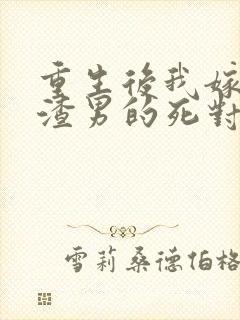 重生後我嫁
渣男的死對
雪莉桑德伯格